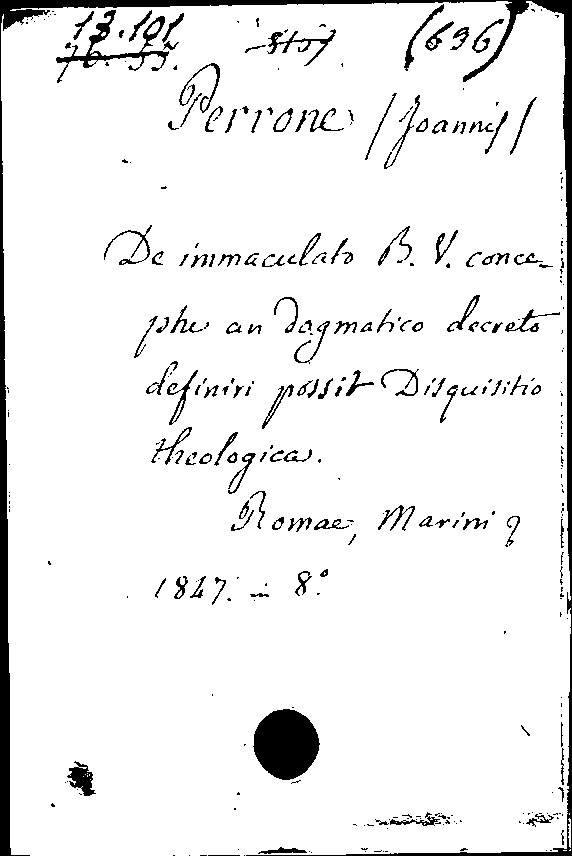 13.101 (636)
76. 55.
Perrone /Joannis/
De immaculato B. V. conce-
ptu an dogmatico decreto
definiri possit Disquisitio
theologica.
Romae, Marini
1847. in 8°